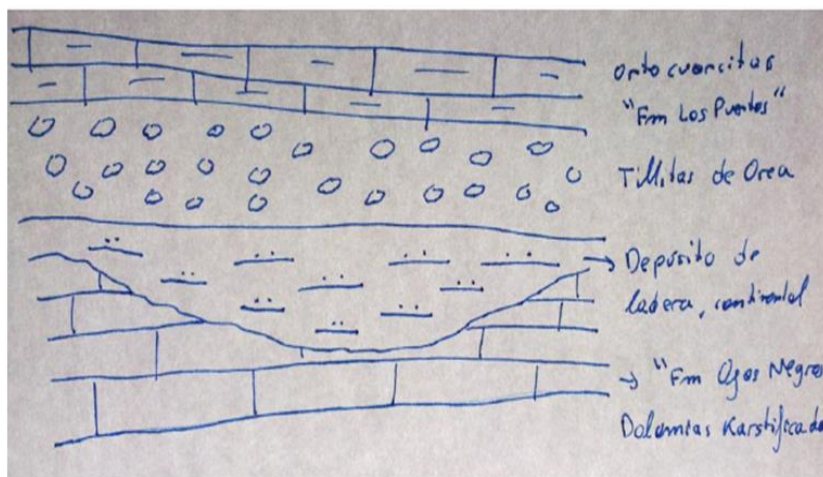 Ortocuarcitas
"Fm Los Puertos"
Tillitas de Orea
→ Depósito de
ladera, continental
→ "Fm Ojos Negros
Dolomías Karstificada